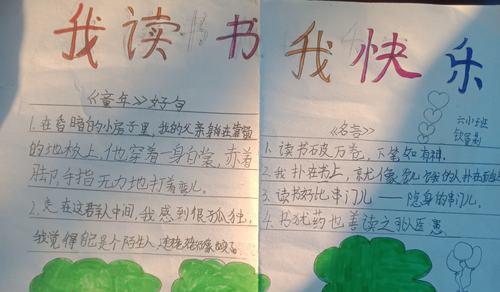 我读书
我快乐
《童年》好句
1.在昏暗的小房子里,我的父亲躺在靠窗
的地板上,他穿着一身白裳,赤着
脚,手指无力地打着弯儿。
2.在这群人中间,我感到很孤独,
我觉得自己是个陌生人
《名言》
六小班
1.读书破万卷,下笔如有神。
2.我扑在书上,就像饥饿的人扑在面包上
3.读书好比串门儿——隐身的串门儿。
4.书犹药也善读之可以医愚